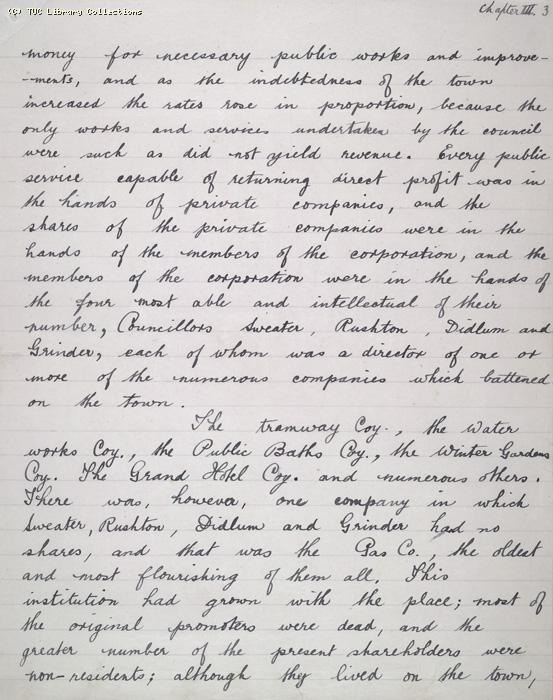 (C) TUC Library Collections
Chapter III. 3
money for necessary public works and improve-
-ments, and as the indebtedness of the town
increased the rates rose in proportion, because the
only works and services undertaken by the council
were such as did not yield revenue. Every public
service capable of returning direct profit was in
the hands of private companies, and the
shares of the private companies were in the
hands of the members of the corporation, and the
members of the corporation were in the hands of
the four most able and intellectual of their
number, Councillors Sweater, Rushton, Didlum and
Grinder, each of whom was a director of one or
more of the numerous companies which battened
on the town.
The tramway Coy., the Water
works Coy., the Public Baths Coy., the Winter Gardens
Coy. The Grand Hotel Coy. and numerous others.
There was, however, one company in which
Sweater, Rushton, Didlum and Grinder had no
shares, and that was the Gas Co., the oldest
and most flourishing of them all. This
institution had grown with the place; most of
the original promoters were dead, and the
greater number of the present shareholders were
non-residents; although they lived on the town,